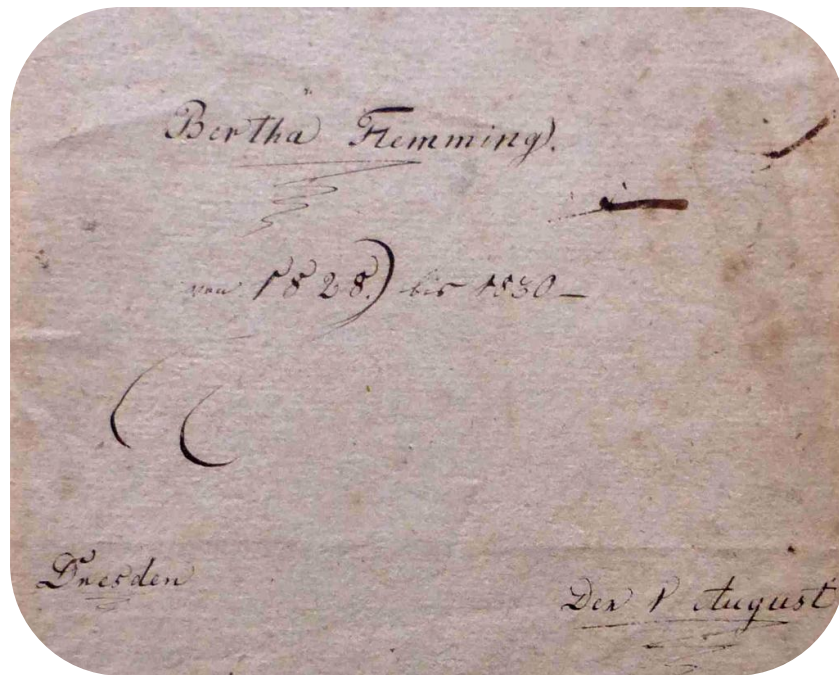 Bertha Flemming.
von 1828. bis 1830
Dresden
Den 1 August